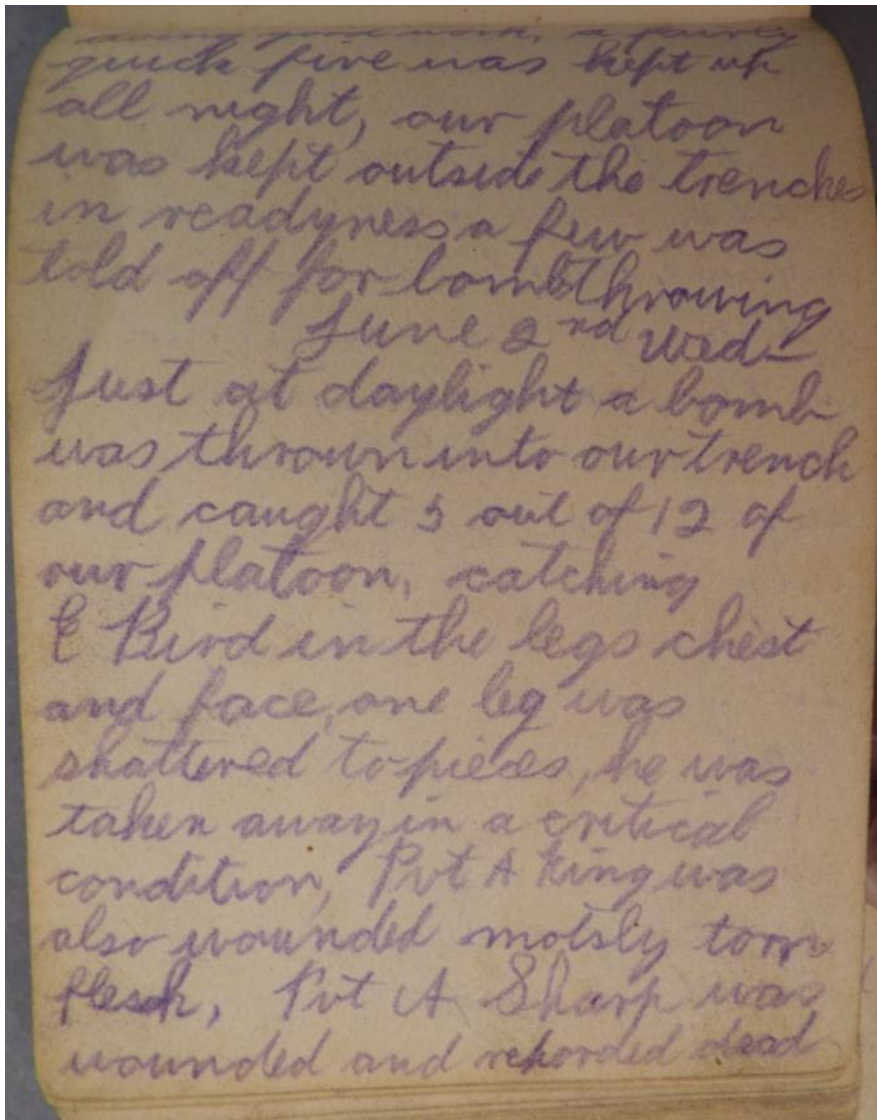 doing good work, a fairly
quick fire was kept up
all night, our platoon
was kept outside the trenches
in readyness a few was
told off for bombthrowing
June 2nd Wed-
Just at daylight a bomb
was thrown into our trench
and caught 5 out of 12 of
our platoon, catching
E Bird in the legs chest
and face, one leg was
shattered to pieces, he was
taken away in a critical
condition, Pvt A King was
also wounded motsly torn
flesh, Pvt A Sharp was
wounded and rehorded dead